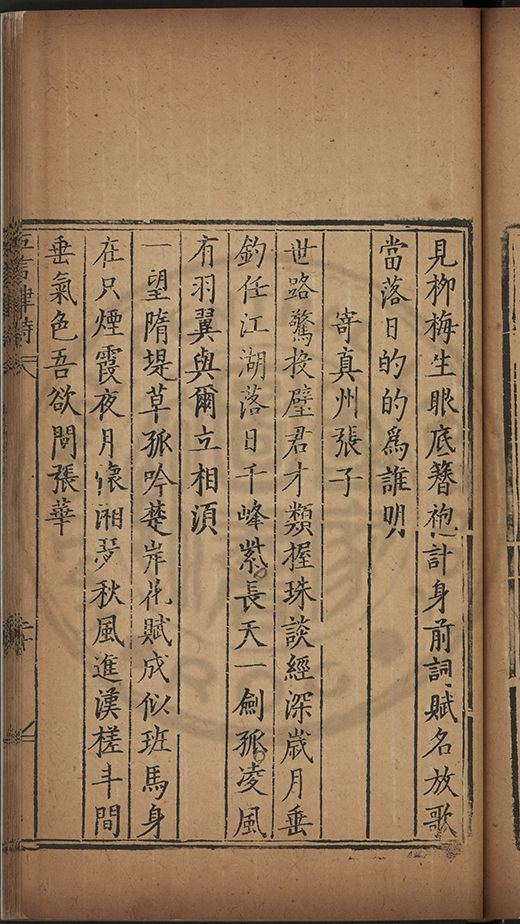 見柳梅生眼底簪袍計身前詞賦名放歌
當落日的的爲誰明
寄真州張子
世路驚投璧君才類握珠談經深歲月垂
釣任江湖落日千峰紫長天一劍孤凌風
有羽翼與爾立相須
一望隋堤草孤吟楚岸花賦成似班馬身
在只煙霞夜月懷湘夢秋風進漢槎斗間
垂氣色吾欲問張華
五言律詩